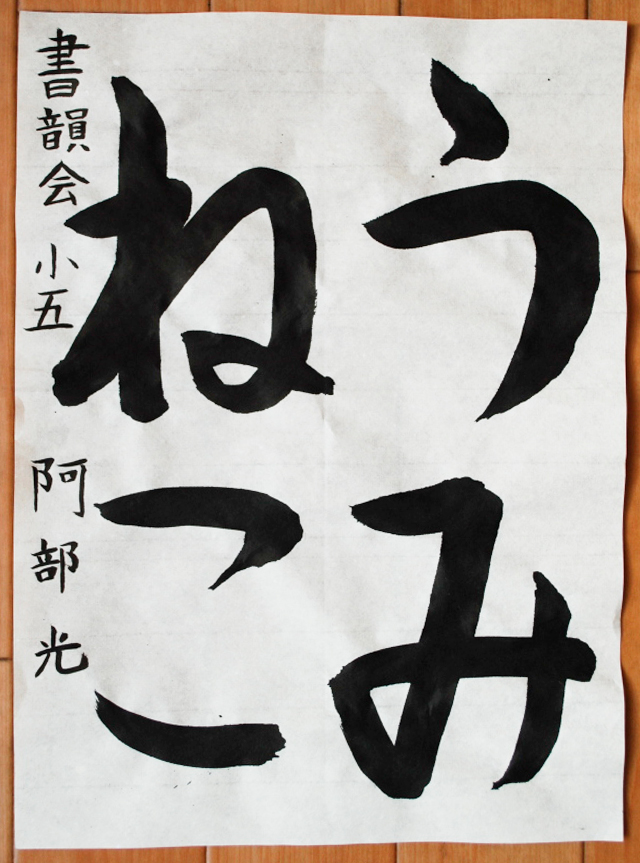 うみ
ねこ
書韻会 小五 阿部 光